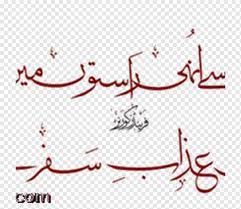 سے اُنہی راستوں میں
عذابِ سفر
com